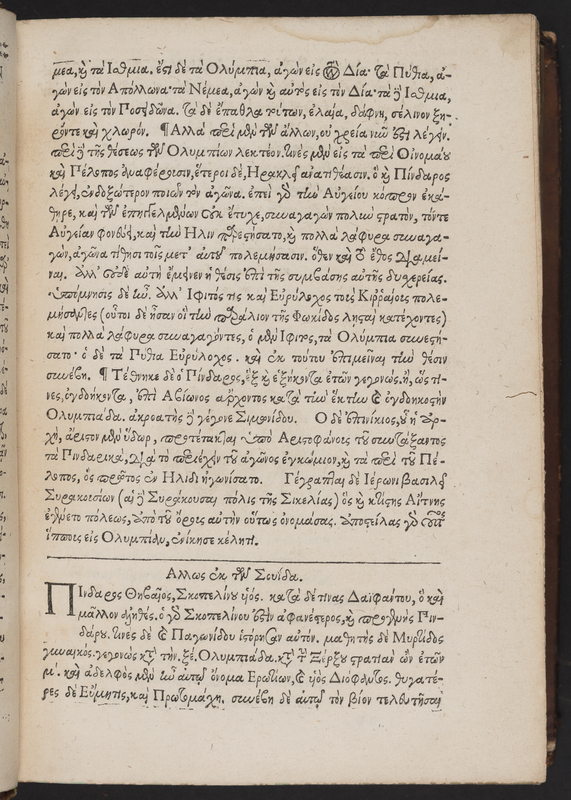 μεα, καὶ τὰ Ἴσθμια. ἔστι δὲ τὰ Ὀλύμπια, ἀγὼν εἰς τὸν Δία· τὰ Πύθια, ἀ-
γὼν εἰς τὸν Ἀπόλλωνα· τὰ Νέμεα, ἀγὼν καὶ αὐτὸς εἰς τὸν Δία· τὰ δὲ Ἴσθμια,
ἀγὼν εἰς τὸν Ποσειδῶνα. τὰ δὲ ἔπαθλα τούτων, ἐλαία, δάφνη, σέλινον ξη-
ρόν τε καὶ χλωρόν. ¶ Ἀλλὰ περὶ μὲν τῶν ἄλλων, οὐ χρεία νῦν ἐστι λέγειν.
περὶ δὲ τῆς θέσεως τῶν Ὀλυμπίων λεκτέον. τινὲς μὲν εἰς τὰ περὶ Οἰνομάου
καὶ Πέλοπος ἀναφέρουσιν, ἕτεροι δὲ, Ἡρακλεῖ ἀνατιθέασιν. ὁ καὶ Πίνδαρος
λέγει, ἐνδοξώτερον ποιῶν τὸν ἀγῶνα. ἐπεὶ γὰρ τὴν Αὐγείου κόπρον ἐκά-
θηρε, καὶ τῶν ἐπηγγελμένων οὐκ ἔτυχε, συναγαγὼν πολὺν στρατὸν, τόν τε
Αὐγείαν φονεύει, καὶ τὴν Ἦλιν παρεστήσατο, καὶ πολλὰ λάφυρα συναγα-
γὼν, ἀγῶνα τίθησι τοῖς μετ' αὐτοῦ πολεμήσασιν. ὅθεν καὶ τὸ ἔθος διαμεῖ-
ναι. ἀλλ' οὐδὲ αὐτὴ ἔμεινεν ἡ θέσις ἐπὶ τῆς συμβάσης αὐτῆς δυσχερείας.
ὑπόμνησις δὲ ἦν. ἀλλ' Ἴφιτός τις καὶ Εὐρύλοχος τοὺς Κιρραίους πολε-
μήσαντες (οὗτοι δὲ ἦσαν οἱ τὴν παράλιον τῆς Φωκίδος λῃσταὶ κατέχοντες)
καὶ πολλὰ λάφυρα συναγαγόντες, ὁ μὲν Ἴφιτος, τὰ Ὀλύμπια συνεστή-
σατο· ὁ δὲ τὰ Πύθια Εὐρύλοχος. καὶ ἐκ τούτου ἐπιμεῖναι τὴν θέσιν
συνέβη. ¶ Τέθνηκε δὲ ὁ Πίνδαρος, ἓξ καὶ ἑξήκοντα ἐτῶν γεγονὼς. ἢ, ὥς τι-
νες, ὀγδοήκοντα, ἐπὶ Ἀβίωνος ἄρχοντος κατὰ τὴν ἕκτην καὶ ὀγδοηκοστὴν
Ὀλυμπιάδα. ἀκροατὴς δὲ γέγονε Σιμωνίδου. Ὁ δὲ ἐπινίκιος, οὗ ἡ ἀρ-
χὴ, ἄριστον μὲν ὕδωρ, προτέτακται ὑπὸ Ἀριστοφάνους τοῦ συντάξαντος
τὰ Πινδαρικὰ, διὰ τὸ περιέχειν τοῦ ἀγῶνος ἐγκώμιον, καὶ τὰ περὶ τοῦ Πέ-
λοπος, ὃς πρῶτος ἐν Ἤλιδι ἠγωνίσατο. Γέγραπται δὲ Ἱέρωνι βασιλεῖ
Συρακουσίων (αἱ δὲ Συράκουσαι πόλις τῆς Σικελίας) ὃς καὶ κτίστης Αἴτνης
ἐγένετο πόλεως, ἀπὸ τοῦ ὄρους αὐτὴν οὕτως ὀνομάσας. ἀποστείλας γὰρ οὗτος
ἵππους εἰς Ὀλυμπίαν, ἐνίκησε κέλητι.
Ἄλλως ἐκ τῶν Σουΐδα.
Πίνδαρος Θηβαῖος, Σκοπελίνου υἱός. κατὰ δέ τινας Δαϊφάντου, ὃ καὶ
μᾶλλον ἀληθές. ὁ γὰρ Σκοπελίνου ἐστὶν ἀφανέστερος, καὶ προσγενὴς Πιν-
δάρου. τινὲς δὲ καὶ Παγωνίδου ἱστόρησαν αὐτόν. μαθητὴς δὲ Μυρτίδος
γυναικός. γεγονὼς κατὰ τὴν. ξε. Ὀλυμπιάδα. κατὰ τὴν Ξέρξου στρατιὰν ὢν ἐτῶν
μ'. καὶ ἀδελφὸς μὲν ἦν αὐτῷ ὄνομα Ἐρωτίων, καὶ υἱὸς Διόφαντος. θυγατέ-
ρες δὲ Εὔμητις, καὶ Πρωτομάχη. συνέβη δὲ αὐτῷ τὸν βίον τελευτῆσαι